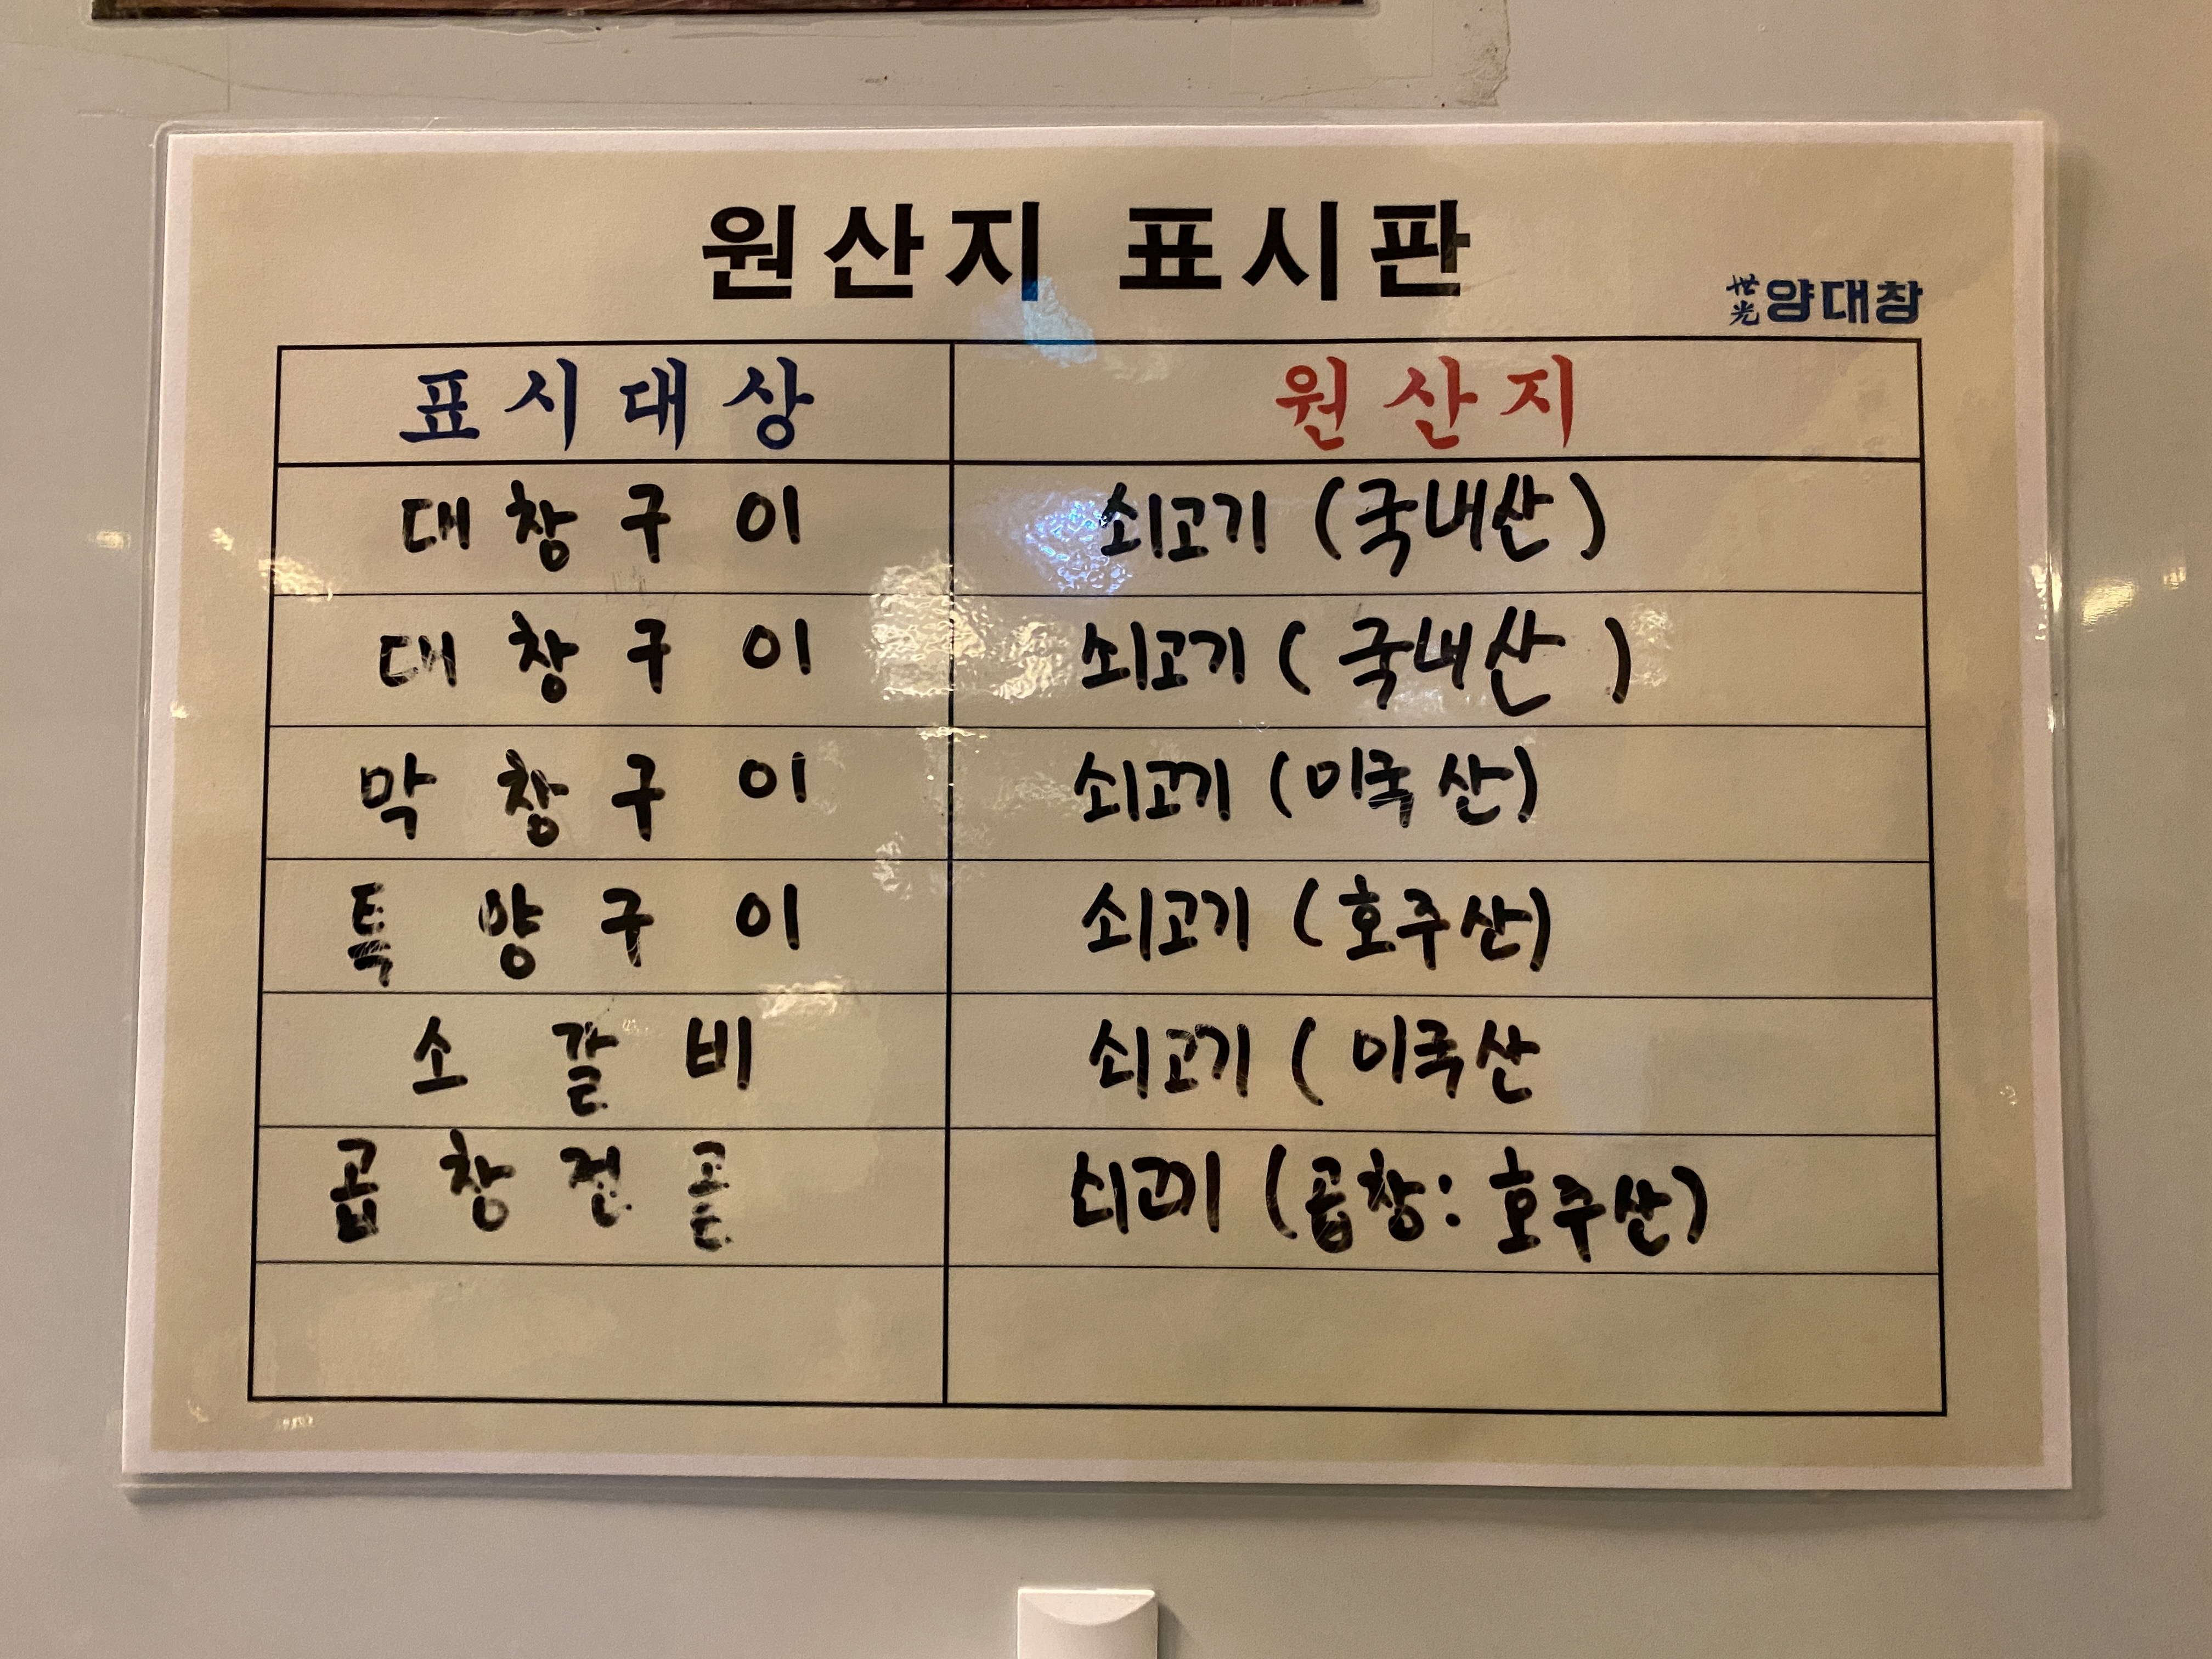 원산지 표시판
世光 양대창
표시대상 원산지
대창구이 쇠고기 (국내산)
대창구이 쇠고기 ( 국내산 )
막창구이 쇠고기 (미국산)
특양구이 쇠고기 (호주산)
소갈비 쇠고기 ( 미국산
곱창전골 쇠고기 (곱창: 호주산)